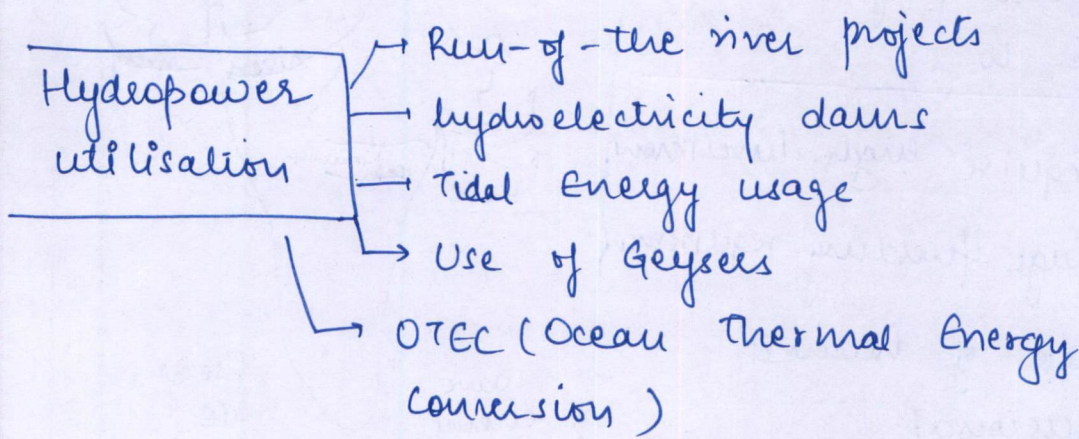 Hydropower
utilisation
Run-of-the river projects
hydroelectricity dams
Tidal Energy usage
Use of Geysers
OTEC (Ocean Thermal Energy
Conversion)